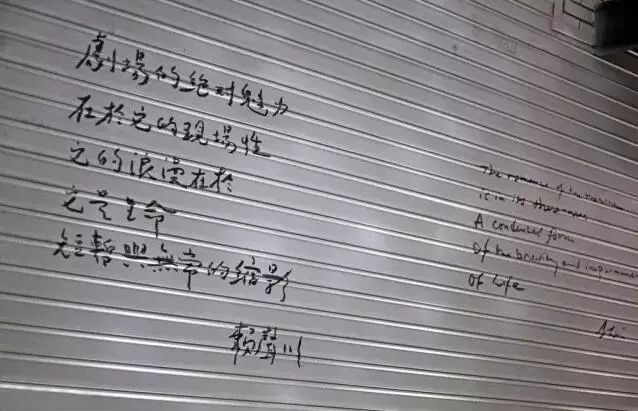 劇場的絕對魅力
在於它的現場性
它的浪漫在於
它是生命
短暫與無常的縮影
賴聲川
The romance of the theatre
is in its
A condensed form
Of the brevity and impermanence
Of Life